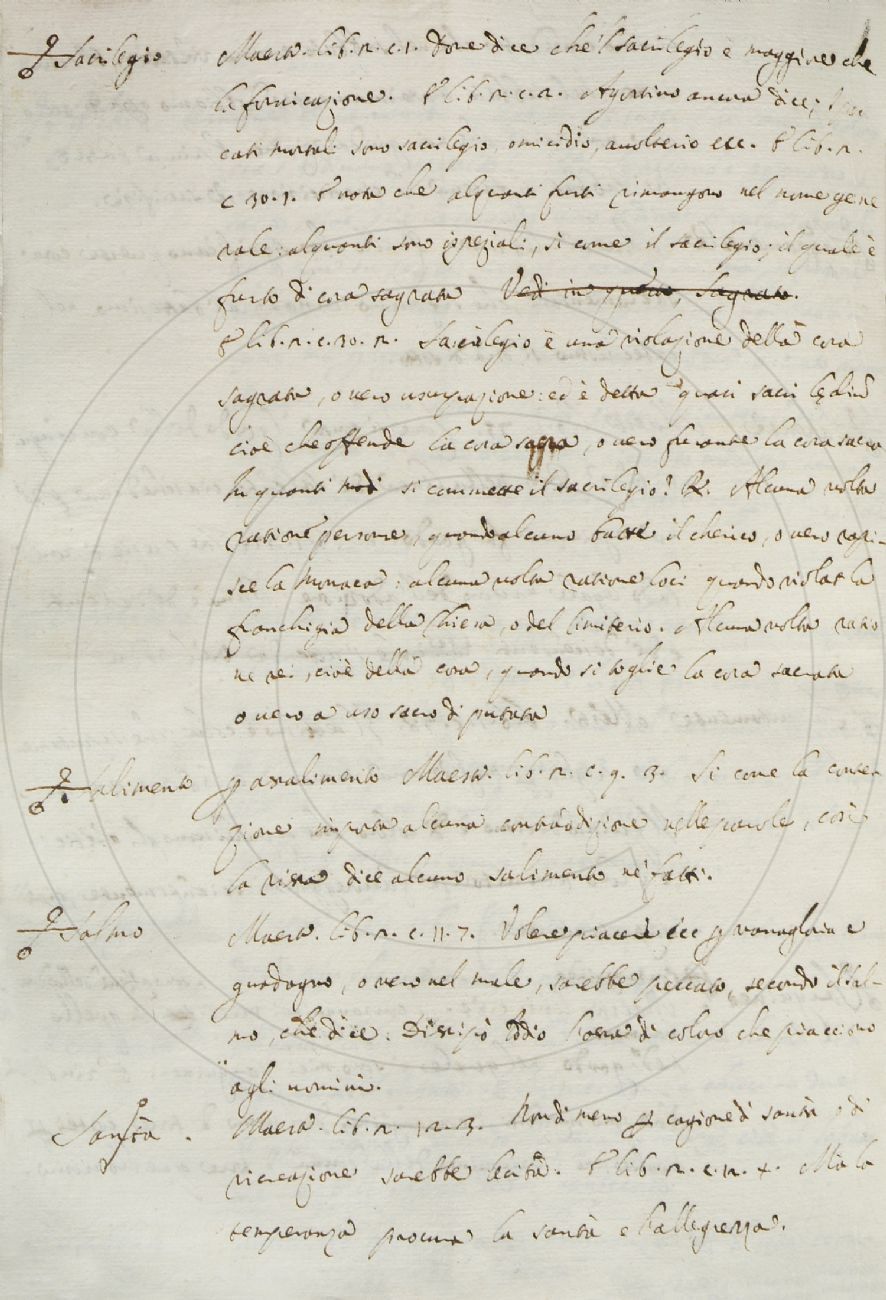 Sacrilegio Maestr. lib. 2. c. 1. Dove dice che'l sacrilegio è maggiore che
la fornicazione. E lib. 2. c. 2. Agostino ancora dice; I pec
cati mortali sono sacrilegio, omicidio, avolterio ecc. E lib. 2.
c. 30. 1. E nota che alquanti furti rimangono nel nome gene
rale: alquanti sono ispeziali, sì come il sacrilegio; il quale è
furto di cosa sagrata Vedi in questo, Sagrato.
E lib. 2. c. 30. 2. Sacrilegio è una violazione della cosa
sagrata, o vero usurpazione: ed è detta quasi sacri
cioè che offende la cosa sagra, o vero furante la cosa sacra
In quanti modi si commette il sacrilegio? R. Alcuna volta
ratione persone, quando alcuno batte il cherico, o vero rapi-
sce la Monaca: alcuna volta ratione loci quando violat la
franchigia della Chiesa, o del Cimiterio. Alcuna volta ratio
ne rei, cioè della cosa, quando si toglie la cosa sacrata
o vero a uso sacro diputata
Salimento p assalimento Maestr. lib. 2. c. 9. 3. Si come la conten
zione importa alcuna contradizione nelle parole, così
la rissa dice alcuno salimento ne' fatti.
Salmo Maestr. lib. 2. c. 11. 7. Volere piacere ecc p vanagloria e
guadagno, o vero nel male, sarebbe peccato, secondo il sal-
mo, che dice: Dissipò Iddio l'ossa di coloro che piacciono
agli uomini.
Santà. Maestr. lib. 2. 12. 3. Nondimeno p cagione di santà o di
ricreazione sarebbe lecita. E lib. 2. c. 12. 4. Ma la
temperanza procura la santà e l'allegrezza.